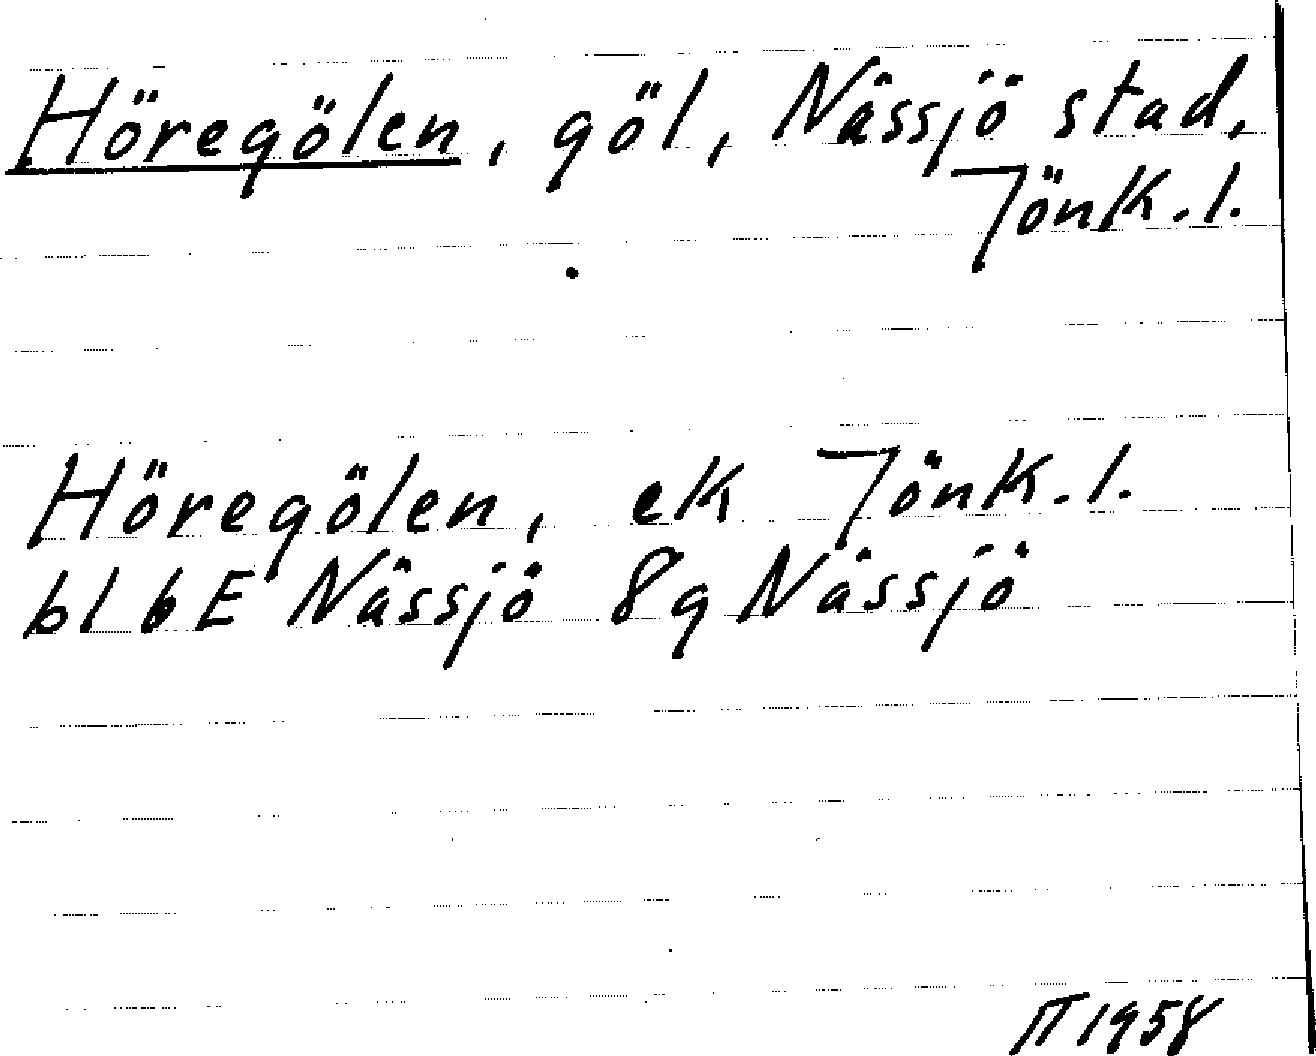 Höregölen, göl, Nässjö stad,
Jönk.l.
Höregölen, ek Jönk.l.
bl 6E Nässjö 8g Nässjö
1958